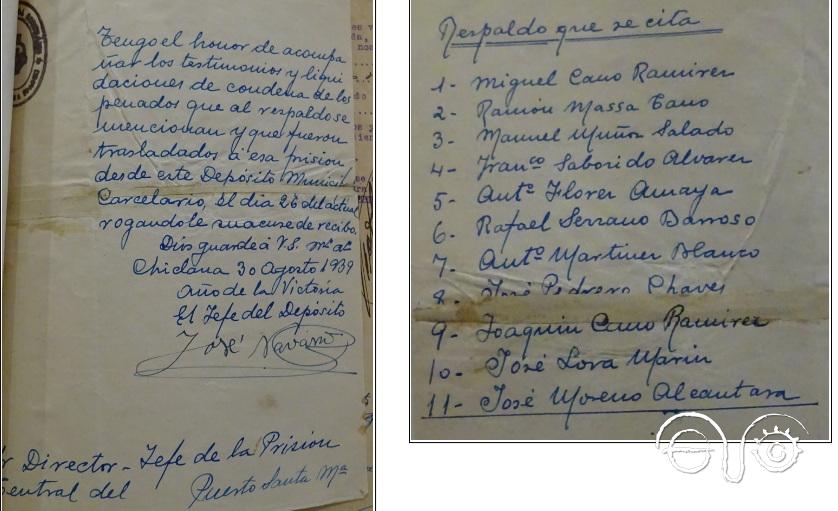 Tengo el honor de acompa
ñar los testimonios y liqui
daciones de condena de los
penados que al respaldo se
mencionan y que fueron
trasladados á esa prision
desde este Depósito Municipl
Carcelario, el dia 26 del actual
rogandole su acuse de recibo.
Dios guarde á V.S. ms. as.
Chiclana 30 Agosto 1939
Año de la Victoria
El Jefe del Depósito
José Navarro
Director - Jefe de la Prision
Central del Puerto Santa Mª
Respaldo que se cita
1- Miguel Cano Ramirez
2- Ramón Massa Cano
3- Manuel Muñoz Salado
4- Franco Saborido Alvarez
5- Antº Florez Amaya
6- Rafael Serrano Barroso
7- Antº Martinez Blanco
8- José Pedrero Chaves
9- Joaquin Cano Ramirez
10- José Lora Marin
11- José Moreno Alcantara